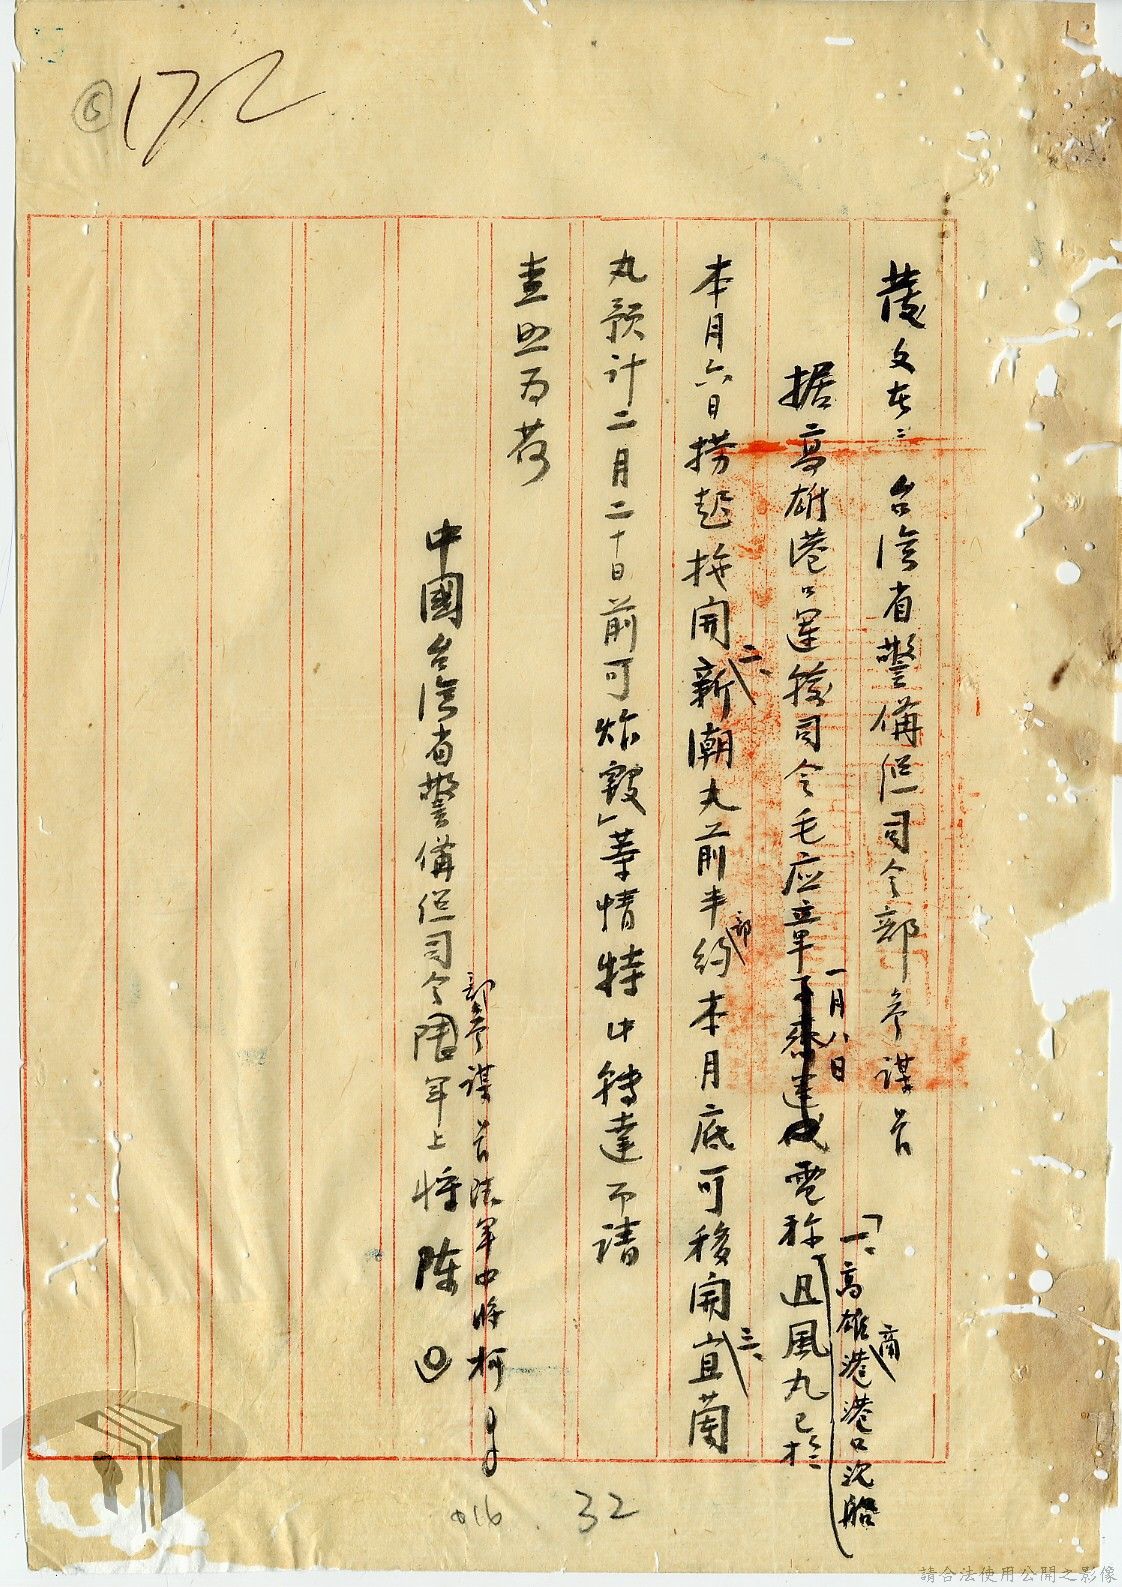 ⑤ 172
发文在：台湾省警備総司令部 参謀长
据高雄港口運輸司令毛应章一月八日電称「一、高雄港商港港口沉船迅風丸已於
本月六日捞起拖開二、新潮丸前半部約本月底可移開三、宜蘭
丸預計二月二十日前可炸毀」等情特电轉達 而请
查照为荷
中國台湾省警備総司令陸軍上将 陈 〇
部参謀长陸軍中將 柯
016 . 32
請合法使用公開之影像